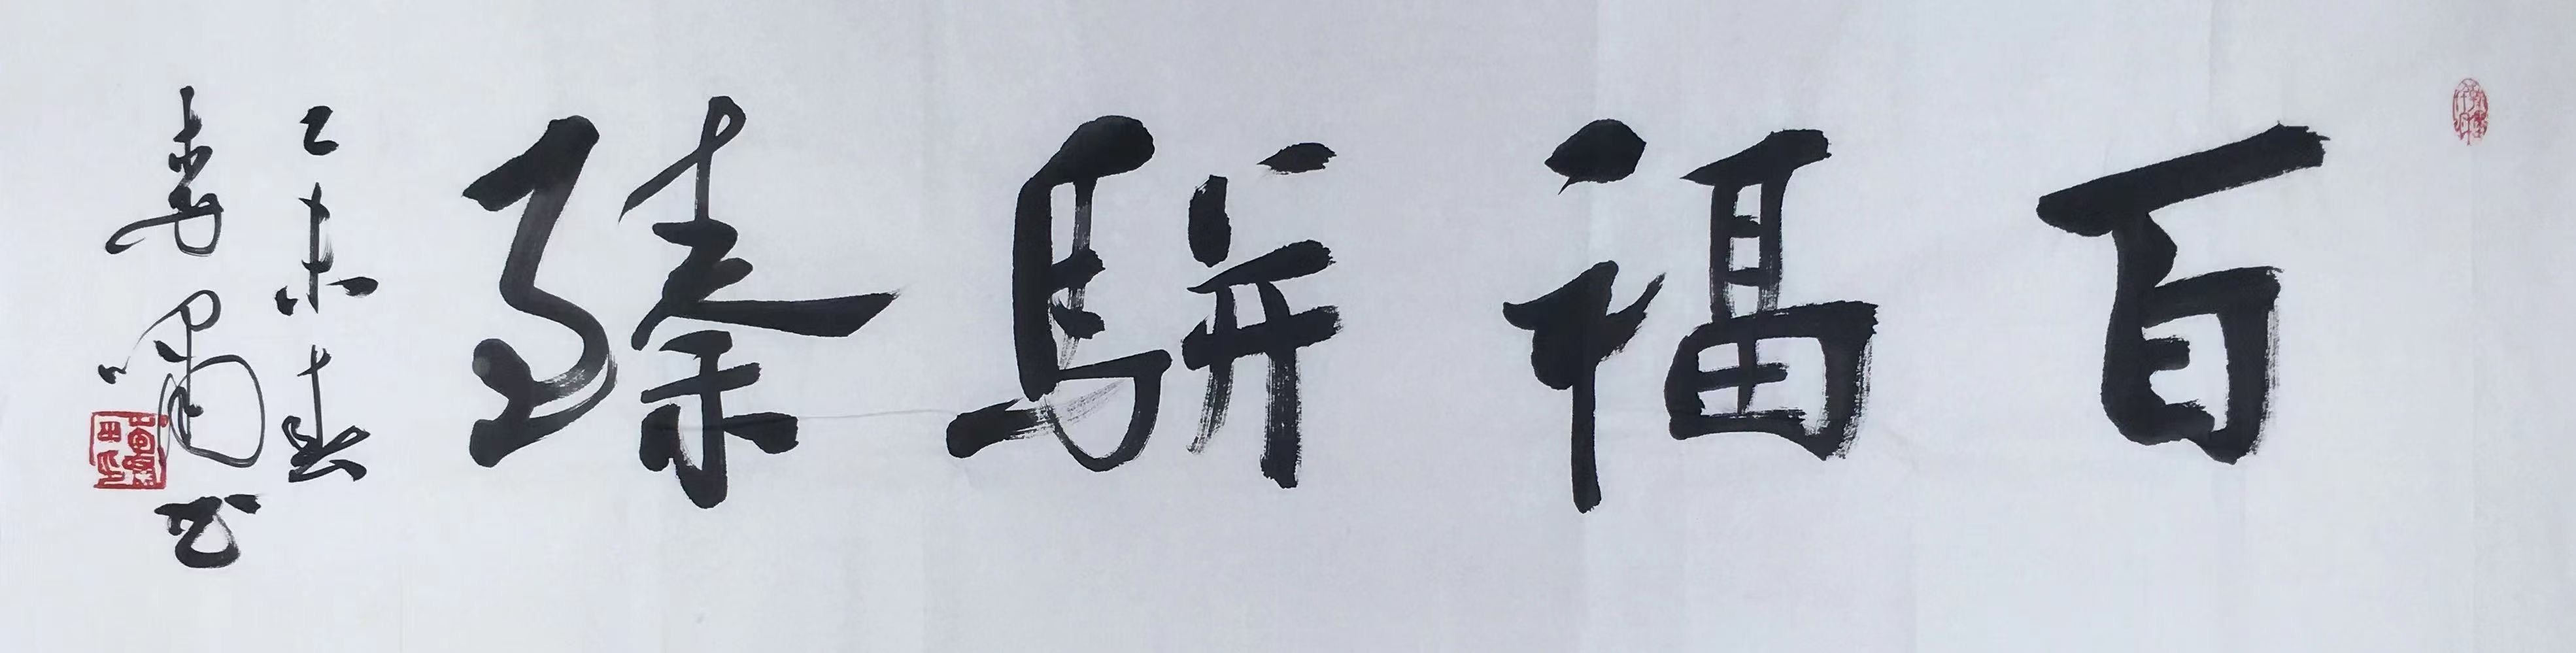 百福駢臻
乙未春
書